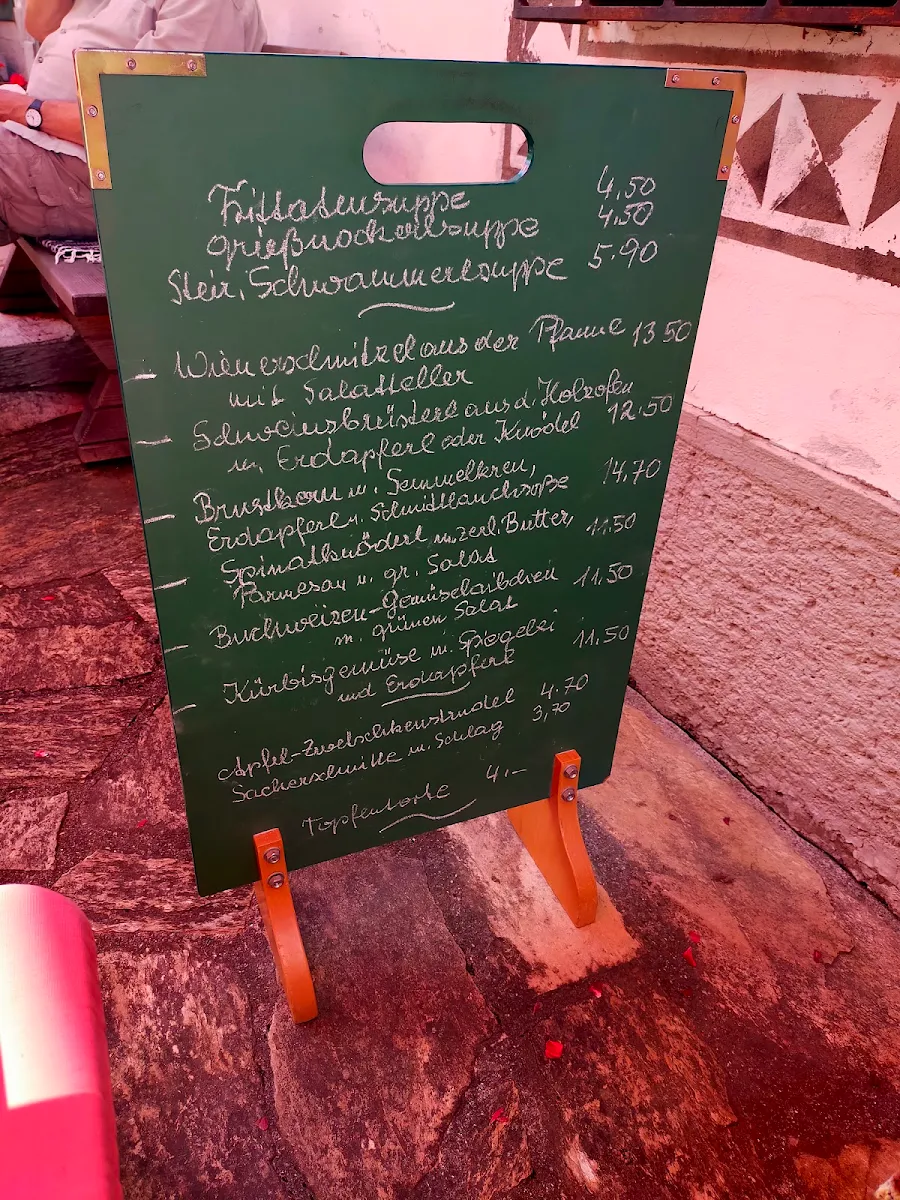 Frittatensuppe 4,50
Grießnockerlsuppe 4,50
Steir. Schwammerlsuppe 5.90
– Wienerschnitzel aus der Pfanne 13 50
mit Salatteller
– Schweinsbrüsterl aus d. Holzofen
m. Erdäpferl oder Knödel 12.50
– Brustkern m. Semmelkren, 14,70
Erdäpferl u. Schnittlauchsoße
– Spinatknöderl m. zerl. Butter, 11.50
Parmesan u. gr. Salat
– Buchweizen-Gemüselaibchen 11,50
m. grünen Salat
– Kürbisgemüse m. Spiegelei 11.50
und Erdäpferl
Apfel-Zwetschkenstrudel 4.70
Sacherschnitte m. Schlag 3,70
Topfentorte 4.–